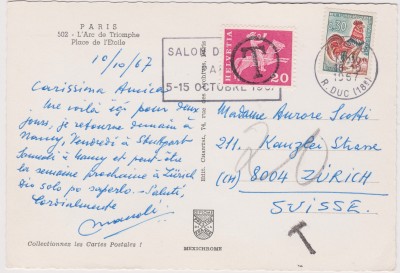 PARIS
502 - L'Arc de Triomphe
Place de l'Etoile
10/10/67
Carissima Amica
Me voilà içi pour deux
jours, je retourne demain à
Nancy, Vendredi à Stuttgart
Samedi à Nancy et peut être
la semaine prochaine à Zürich
Dio solo puo saperlo. Saluti,
Cordialmente
Collectionnez les Cartes Postales !
SALON D
5-15 OCTOBRE 1967
HELVETIA
20
T
0,30
18-10
1967
R. DUC (18e)
MEXICHROME
Madame Aurore Scotti
211. Kanzlei Strasse
(CH) 8004 ZÜRICH
SUISSE.
20
T